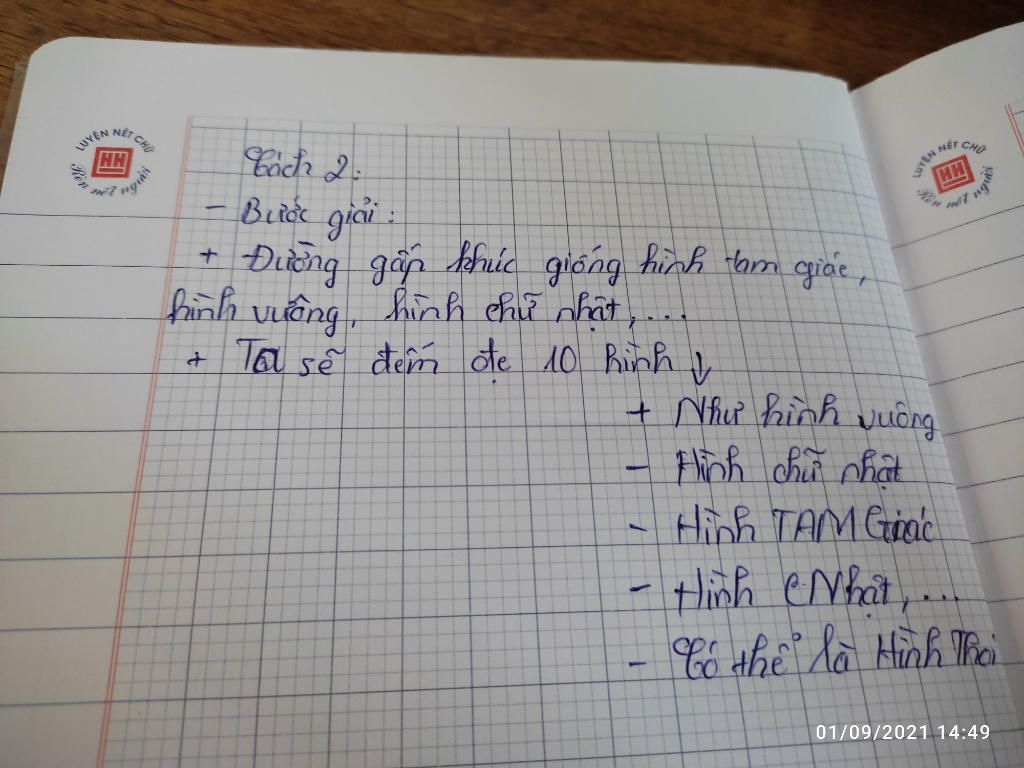 LUYỆN NÉT CHỮ
HH
Rèn nết người
LUYỆN NÉT CHỮ
HH
Rèn nết người
Cách 2:
- Bước giải:
+ Đường gấp khúc giống hình tam giác,
hình vuông, hình chữ nhật,...
+ Ta sẽ đếm đc 10 hình ↓
+ Như hình vuông
- Hình chữ nhật
- Hình TAM Giác
- Hình C.Nhật,...
- Có thể là Hình Thoi
01/09/2021 14:49